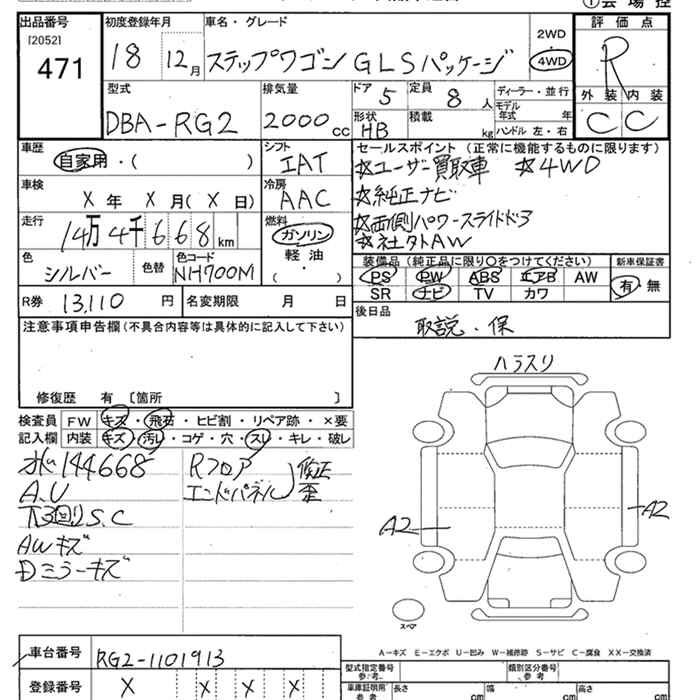 ①会場控
出品番号 初度登録年月 車名・グレード 2WD 評価点
[2052]
471 18 12月 ステップワゴン GLSパッケージ 4WD R
型式 排気量 ドア 5 定員 8人 ディーラー・並行 外装 内装
モデル年式 年
DBA-RG2 2000cc 形状 HB 積載 kg ハンドル 左・右 C C
車歴 自家用・( ) シフト IAT セールスポイント(正常に機能するものに限ります)
☆ユーザー買取車 ☆4WD
車検 X年 X月(X日) 冷房 AAC ☆純正ナビ
走行 14万4千668km 燃料 ガソリン ☆両側パワースライドドア
軽油・ ( ) ☆社外AW
色 シルバー 色替 色コード NH700M 装備品(純正品に限り○をつけてください) 新車保証書
PS PW ABS エアB AW 有・無
SR ナビ TV カワ
R券 13,110円 名変期限 月 日
後日品 取説・保
注意事項申告欄(不具合内容等は具体的に記入して下さい)
修復歴 有 [箇所 ]
検査員 FW キズ・飛石・ヒビ割・リペア跡・×要
記入欄 内装 キズ・汚レ・コゲ・穴・スレ・キレ・破レ
144668 Rフロア
A.U エンドパネル 修正 歪
下回りS.C
AWキズ
Dミラーキズ
ハラスリ
A2 A2
スペア
A-キズ E-エクボ U-凹み W-補修跡 S-サビ C-腐食 XX-交換済
車台番号 RG2-1101913
型式指定番号 参考. 類別区分番号 参考.
登録番号 X X X X
車庫証明用 参考 長さ cm 幅 cm 高さ cm